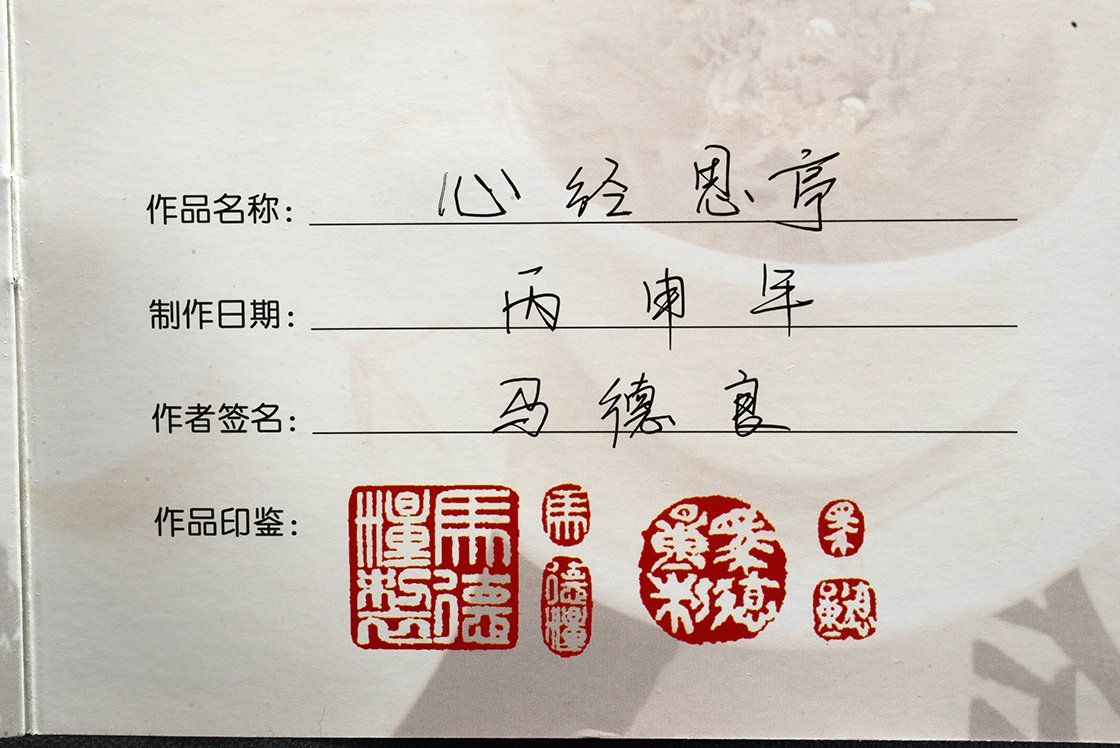 作品名称： 心经恩亭
制作日期： 丙申年
作者签名： 马德良
作品印鉴：
馬德
馬